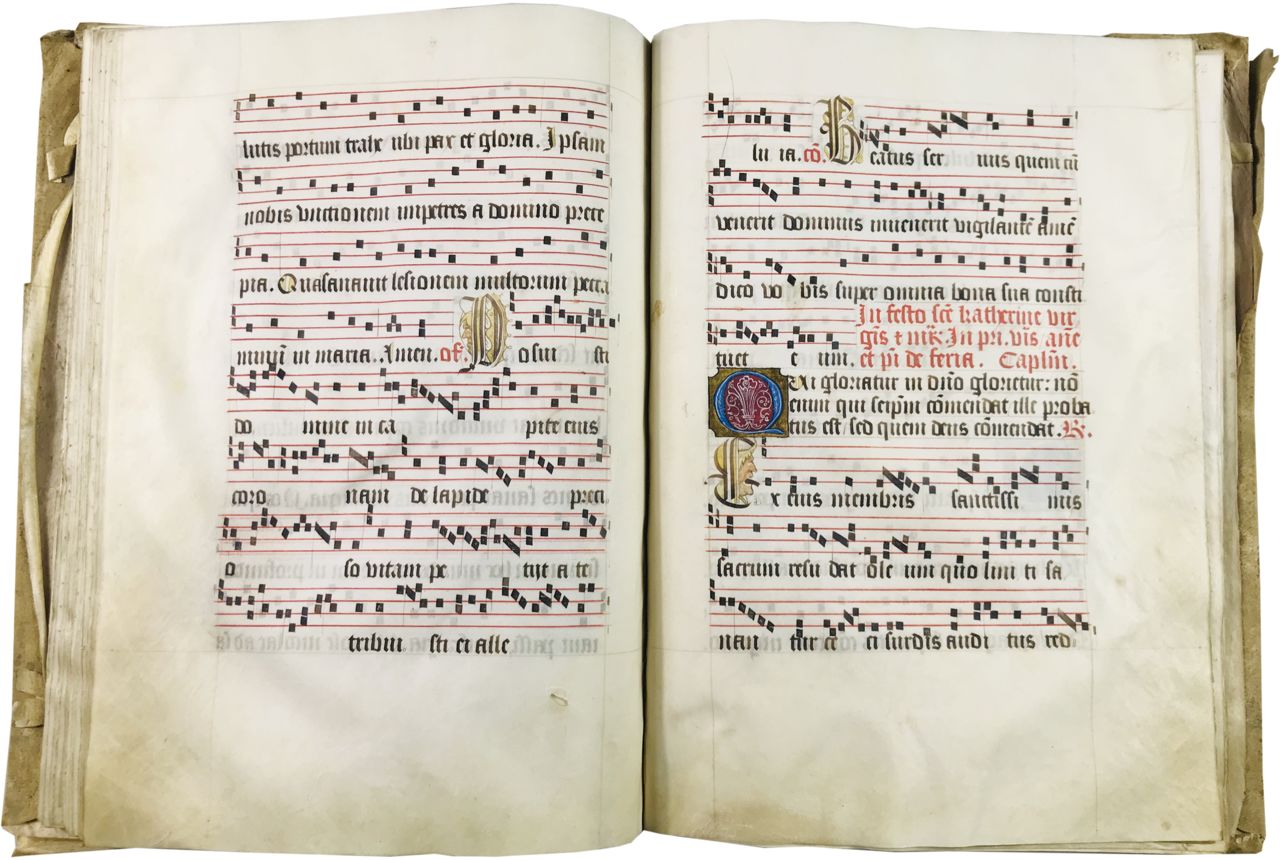 lutis portum trahe ubi pax et gloria. Ipsam
nobis vnctionem impetres a domino prece
pia. Quasanauit lesionem multorum pecca
minū in maria. Amen. of. P osuit sti
do mine in ca pite eius
coro nam de lapide preci
o so vitam pe tijt a te
tribui sti ei alle
lu ia. cō. B eatus ser uus quem cū
venerit dominus inuenerit vigilantē amē
dico vo bis super omnia bona sua consti
tuet e um.
In festo scē katherine vir
gīs et mr̄. In pri. vīs. anē
et pī de feria. Caplm̄.
Qui gloriatur in dnō glorietur: nō
enim qui seipm̄ cōmendat ille proba
tus est / sed quem deus cōmendat. R.
Ex eius membris sanctissi mis
sacrum resu dat ole um quo lini ti sa
nan tur ce ci surdis audi tus red